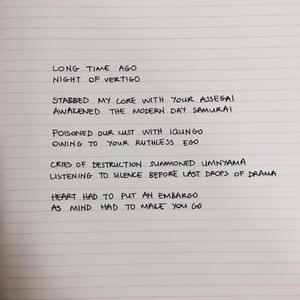 LONG TIME AGO
NIGHT OF VERTIGO
STABBED MY CORE WITH YOUR ASSEGAI
AWAKENED THE MODERN DAY SAMURAI
POISONED OUR LUST WITH IQUNGO
OWING TO YOUR RUTHLESS EGO
CRIES OF DESTRUCTION SUMMONED UMNYAMA
LISTENING TO SILENCE BEFORE LAST DROPS OF DRAMA
HEART HAD TO PUT AN EMBARGO
AS MIND HAD TO MAKE YOU GO